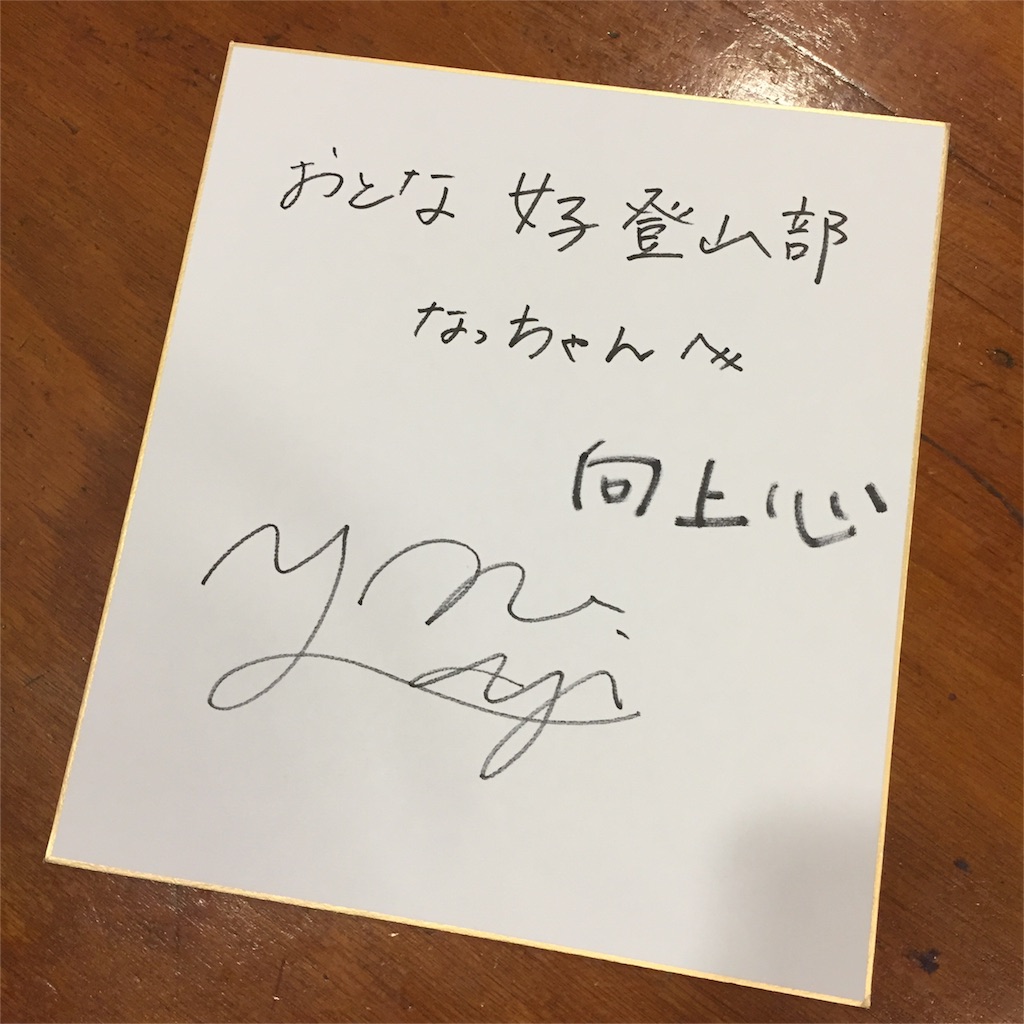 おとな 好 登山部
なっちゃんへ
向上心